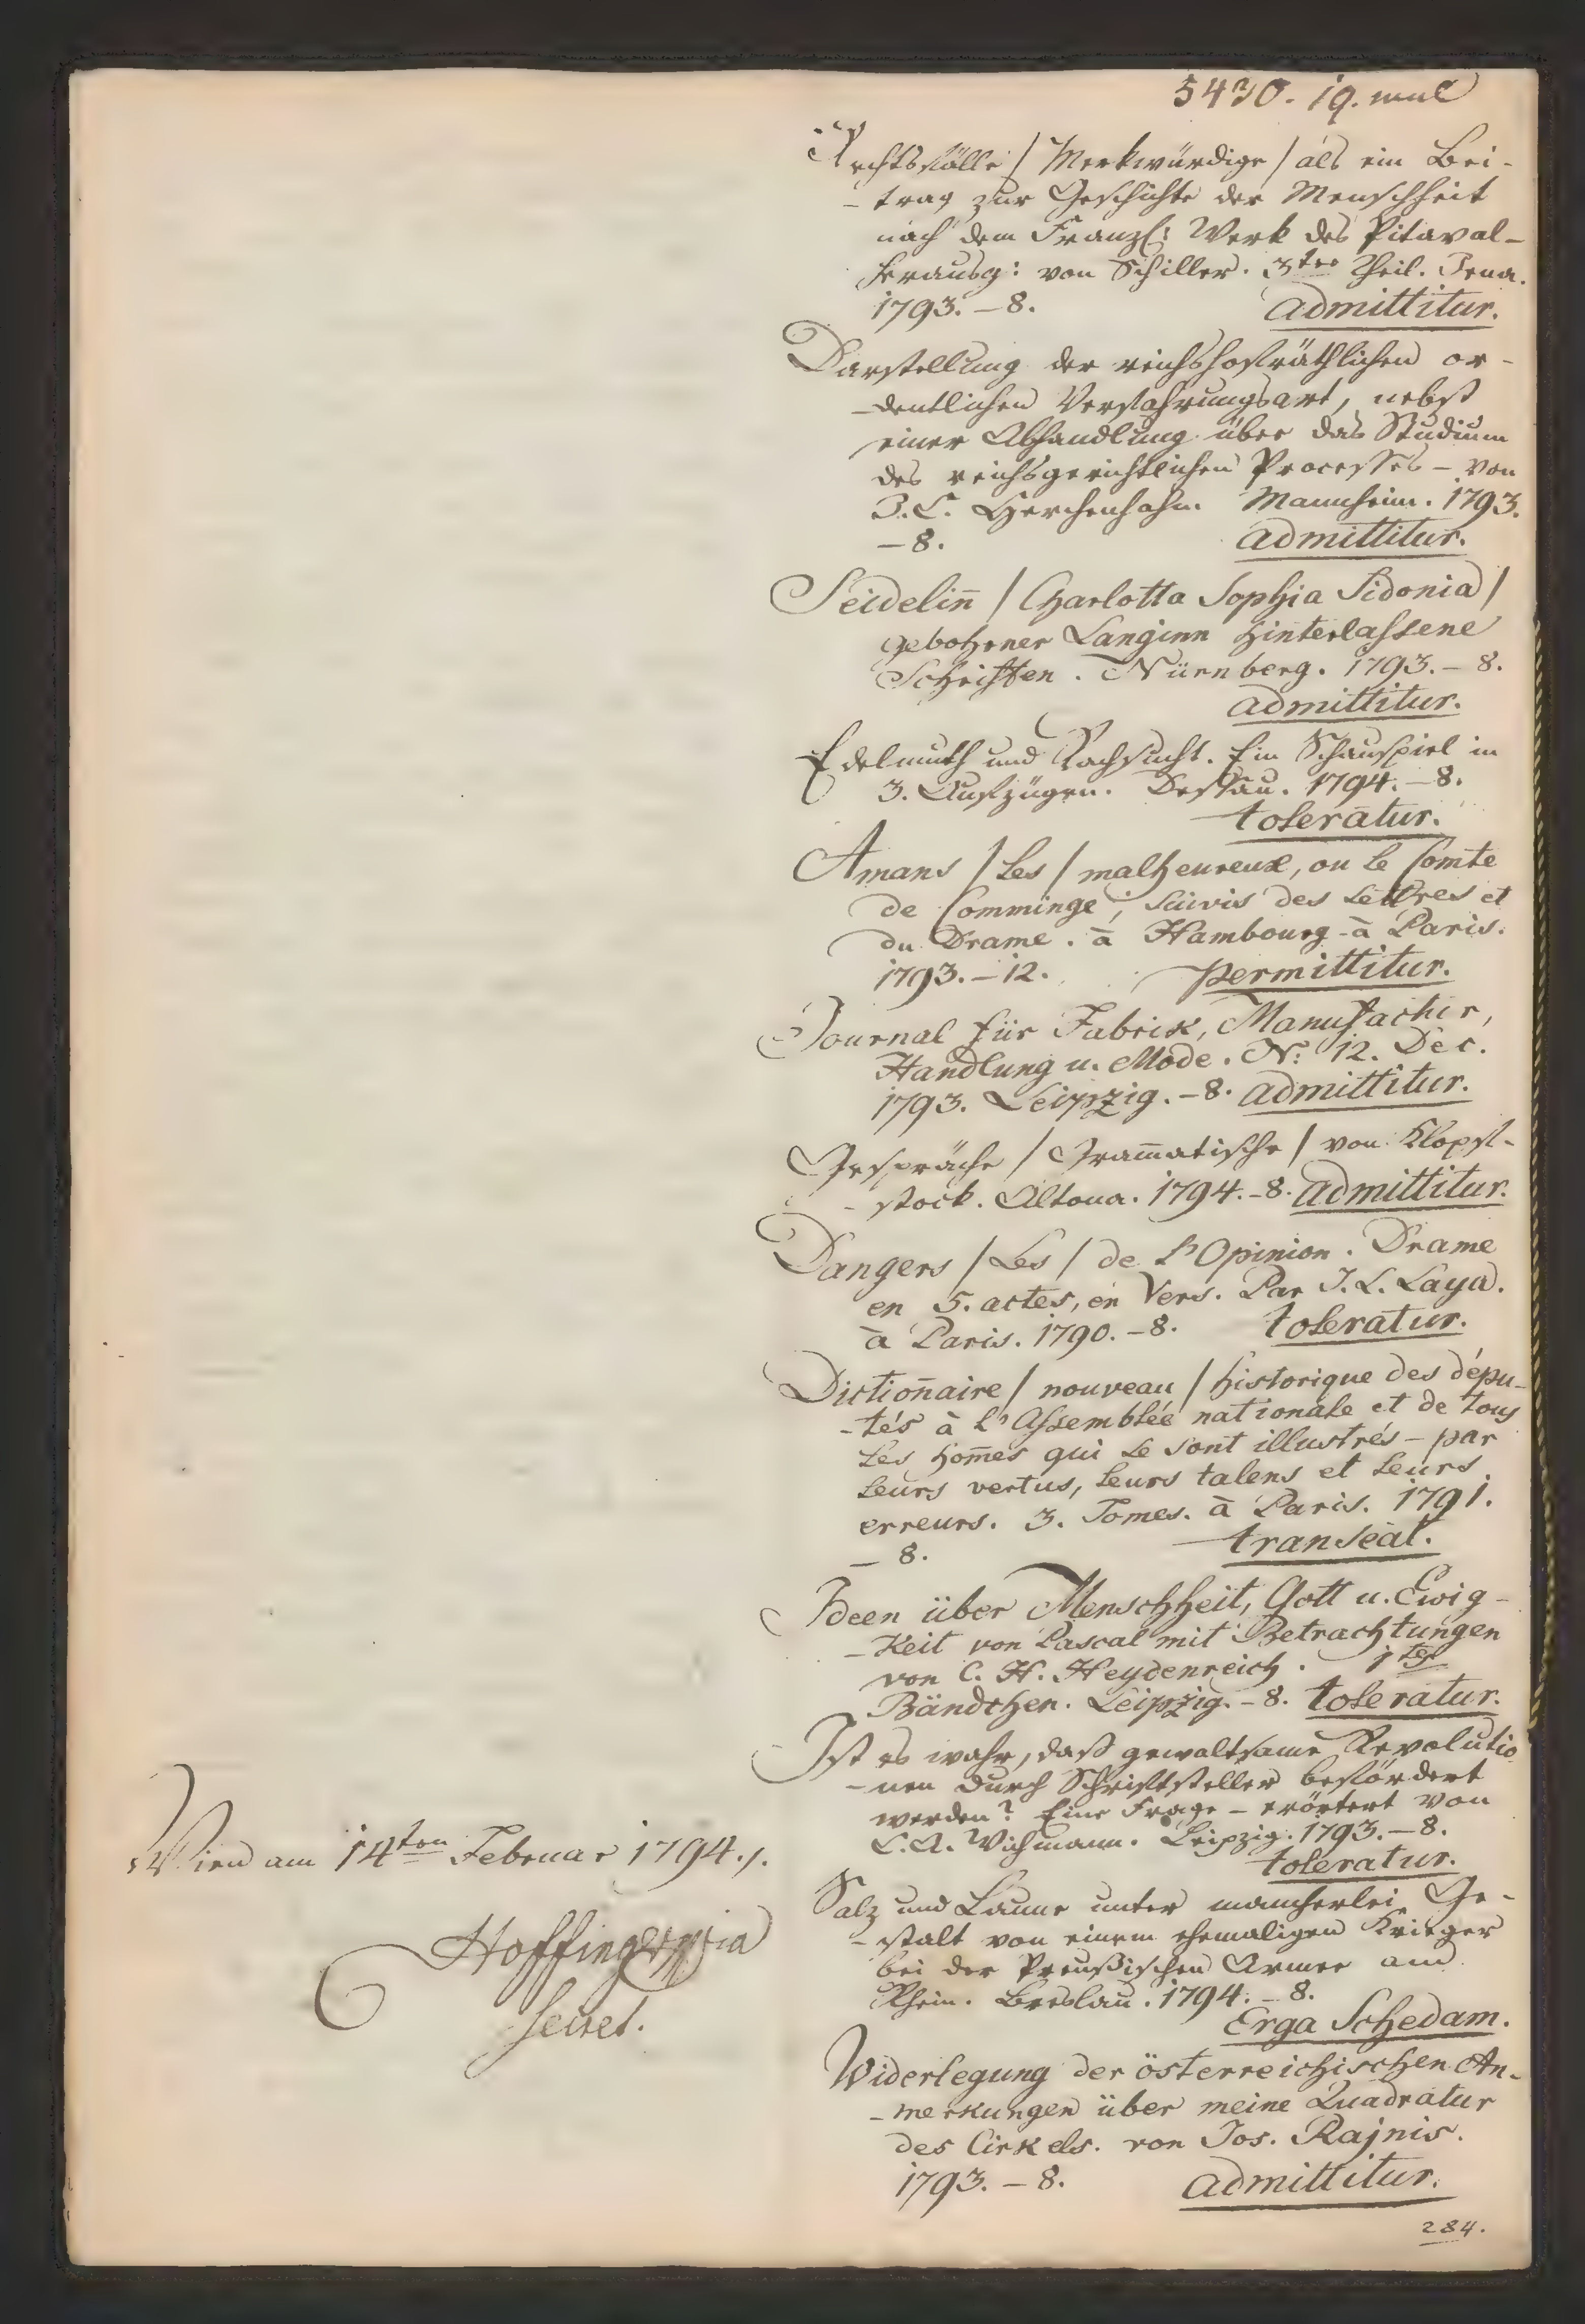 5430.
Rechtsfälle / Merkwürdige / als ein Bei-
- trag zur Geschichte der Menschheit
nach dem Franzs: Werk des Pitaval -
herausg: von Schiller. 3ter Theil. Jena.
1793. - 8. admittitur.
Darstellung der reichshofräthlichen or-
- dentlichen Verfahrungsart, nebst
einer Abhandlung über das Studium
des reichsgerichtlichen Processes - von
J. C. Herchenhahn. Mannheim. 1793.
- 8. admittitur.
Seidelin̄ / Charlotta Sophia Sidonia /
gebohrner Langinn hinterlassene
Schriften. Nürnberg. 1793. - 8.
admittitur.
Edelmuth und Rachsucht. Ein Schauspiel in
3. Aufzügen. Dessau. 1794. - 8.
toleratur.
Amans / Les / malheureux, ou le Comte
de Comminge; suivis des Lettres et
du Drame. à Hambourg - à Paris.
1793. - 12. permittitur.
Journal für Fabrik, Manufactur,
Handlung u. Mode. N: 12. Dec.
1793. Leipzig. - 8. admittitur.
Gespräche / Gram̄atische / von Klopst-
- stock. Altona. 1794. - 8. admittitur.
Dangers / Les / de l'Opinion. Drame
en 5. actes, en Vers. Par J. L. Laya.
à Paris. 1790. - 8. toleratur.
Dictioñaire / nouveau / historique des dépu-
- tés à l'Assemblée nationale et de tous
les hom̄es qui se sont illustrés - par
leurs vertus, leurs talens et leurs
erreurs. 3. Tomes. à Paris. 1791.
- 8. transeat.
Ideen über Menschheit, Gott u. Ewig-
- keit von Pascal mit Betrachtungen
von C. H. Heydenreich. 1tes
Bändchen. Leipzig. - 8. toleratur.
Ist es wahr, daß gewaltsame Revolutio
- nen durch Schriftsteller befördert
werden? Eine Frage - erörtert von
C. A. Wichmann. Leipzig. 1793. - 8.
toleratur.
Salz und Laune unter mancherlei Ge-
- stalt von einem ehemaligen Krieger
bei der Preußischen Armee am
Rhein. Breslau. 1794. - 8.
Erga Schedam.
Widerlegung der österreichischen An-
- merkungen über meine Quadratur
des Cirkels. von Jos. Rajnis.
1793. - 8. admittitur.
284.
Wien am 14ten Februar 1794.
Hoffinger
Secret.